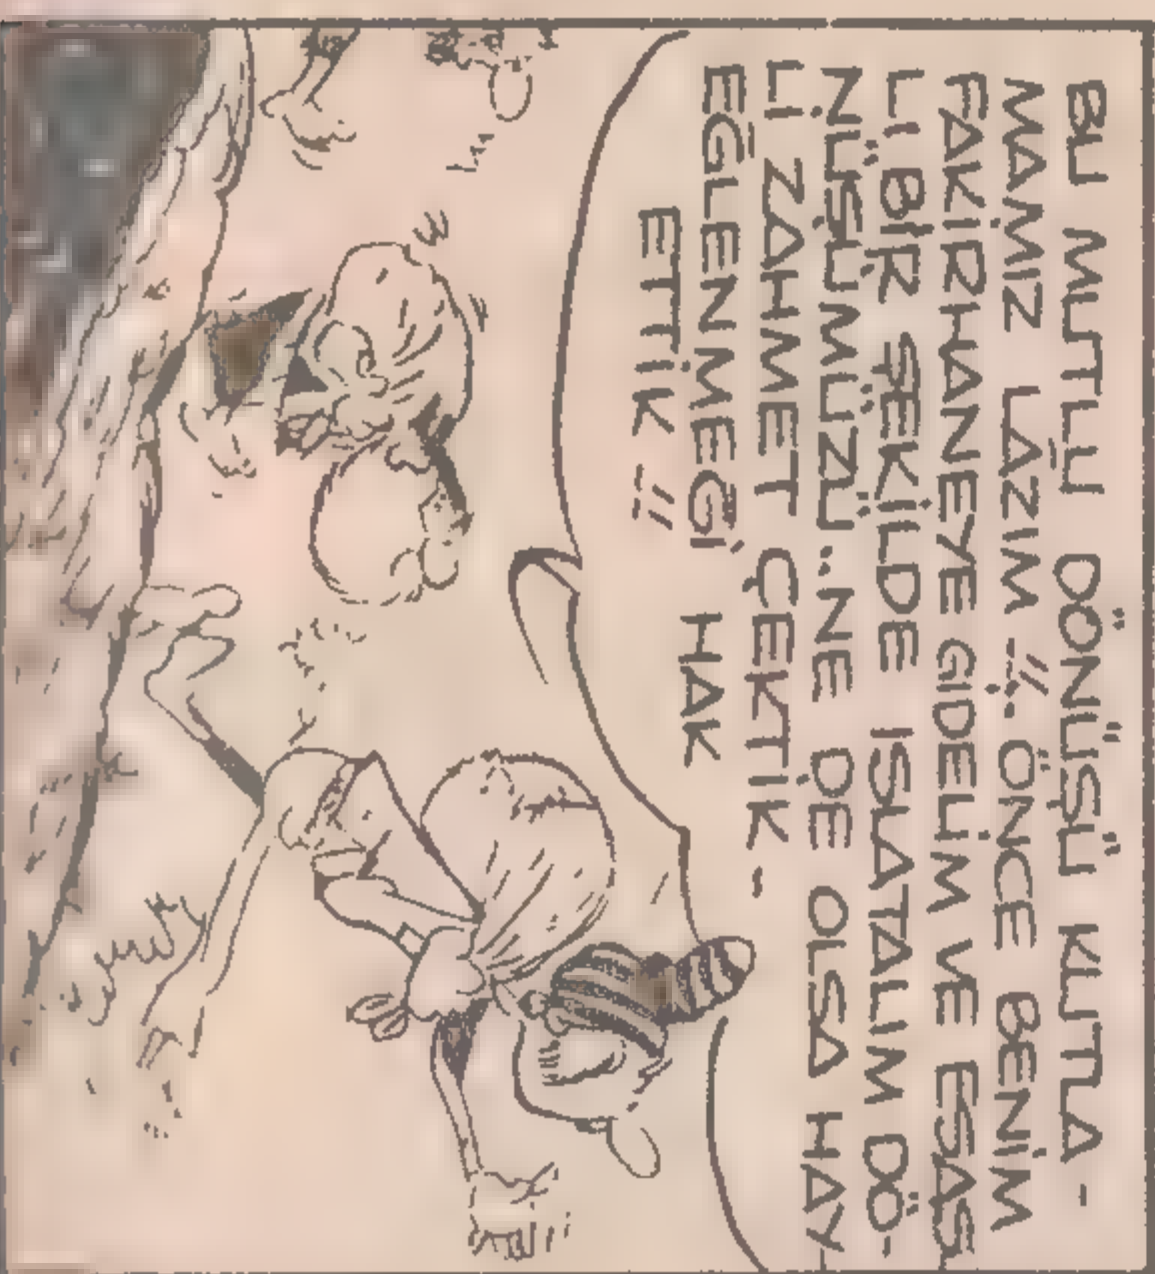 BU MUTLU DÖNÜŞÜ KUTLA-
MAMIZ LÂZIM !!. ÖNCE BENİM
FAKİRHANEYE GİDELİM VE ESAS
LI BİR ŞEKİLDE ISLATALIM DÖ-
NÜŞÜMÜZÜ..NE DE OLSA HAY-
Lİ ZAHMET ÇEKTİK -
EĞLENMEĞİ HAK
ETTİK !!